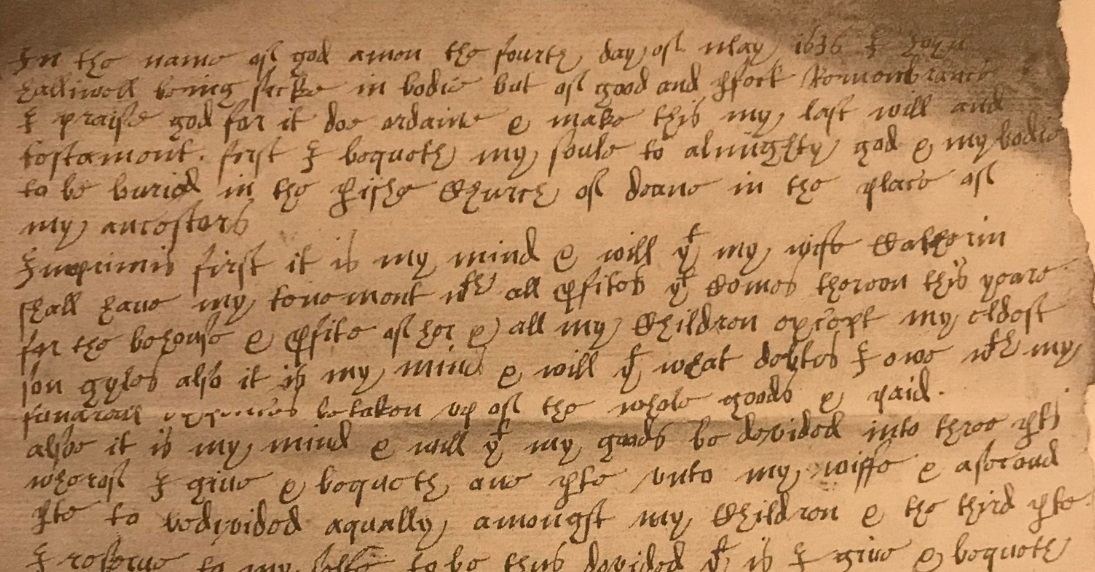 In the name of god amen the fourth day of May 1636 I John
halliwell being sicke in bodie but of good and pfect Remembrance
I praise god for it doe ordaine & make this my last will and
testament. first I bequeth my soule to almighty god & my bodie
to be buried in the pishe Church of deane in the place of
my ancestors
Imprimis first it is my mind & will yt my wife Catherin
shall have my tenement wth all pfites yt Comes thereon this yeare
for the behouse & pfite of her & all my Children except my eldest
son gyles also it is my mind & will yt what debtes I owe wth my
funerall expences be taken up of the whole goods & paid.
alsoe it is my mind & will yt my goods be devided into three pts
wherof I give & bequeth one pte unto my wiffe & a second
pte to be devided aqually amongst my Children & the third pte
I reserve to my selfe to be thus devided yt is I give & bequeth